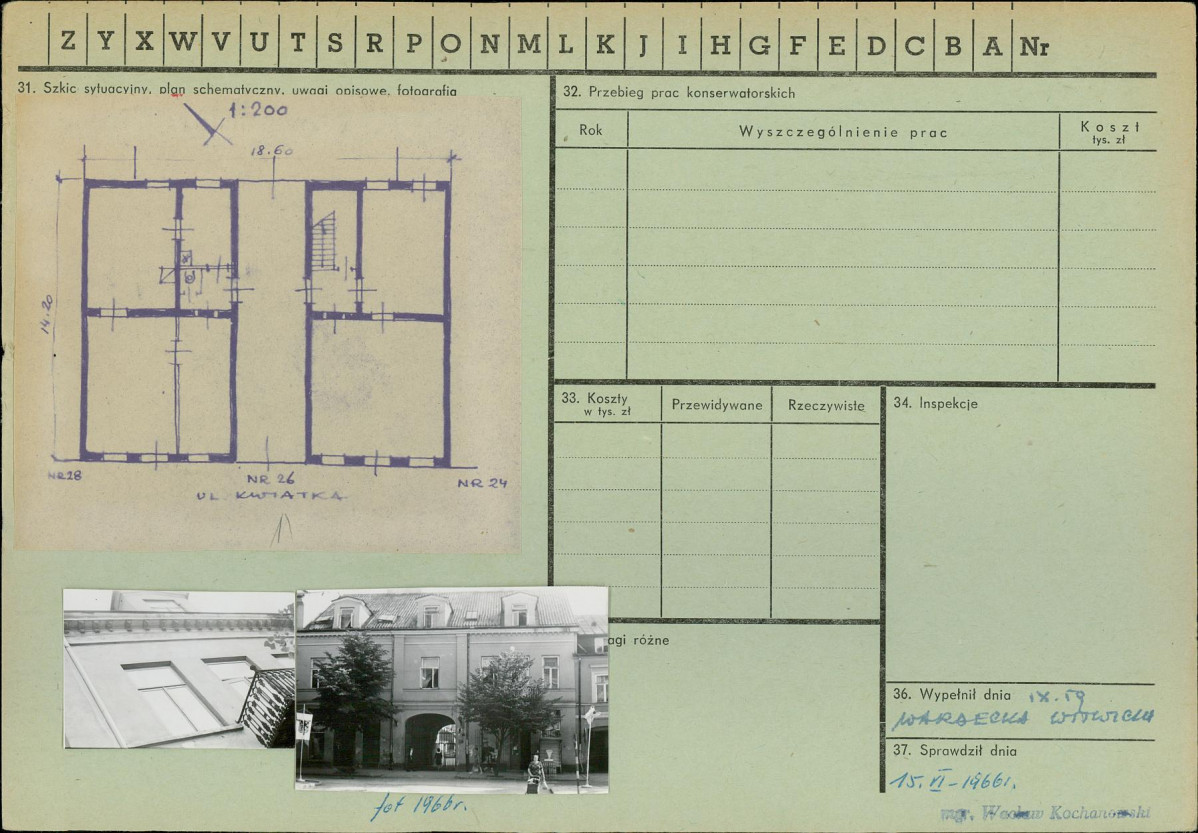 Z Y X W V U T S R P O N M L K J I H G F E D C B A Nr
31. Szkic sytuacyjny, plan schematyczny, uwagi opisowe, fotografia
1:200
18.60
14.20
NR 28
NR 26
NR 24
UL. KWIATKA
fot 1966r.
32. Przebieg prac konserwatorskich
Rok
Wyszczególnienie prac
Koszt
tys. zł
33. Koszty
w tys. zł
Przewidywane
Rzeczywiste
34. Inspekcje
agi różne
36. Wypełnił dnia IX.59
37. Sprawdził dnia
15.VI-1966r.
mgr. Wacław Kochanowski